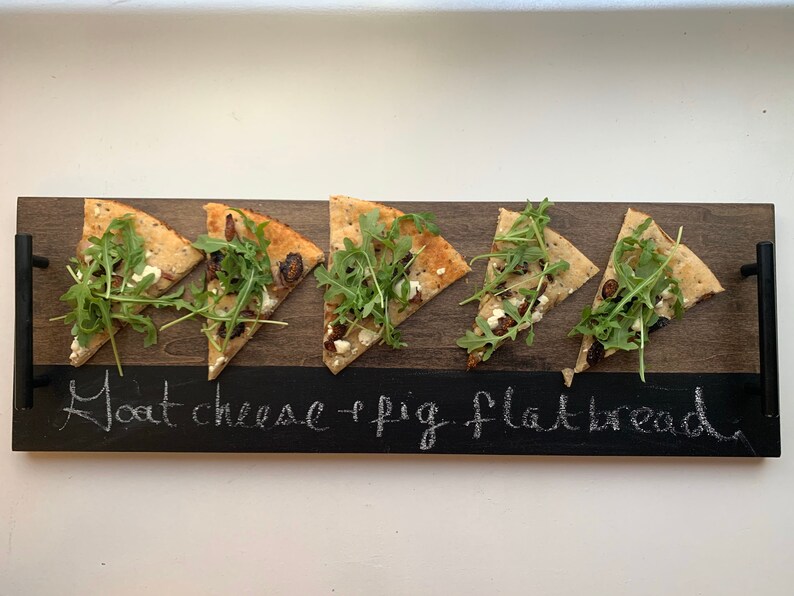 Goat cheese + pig flatbread